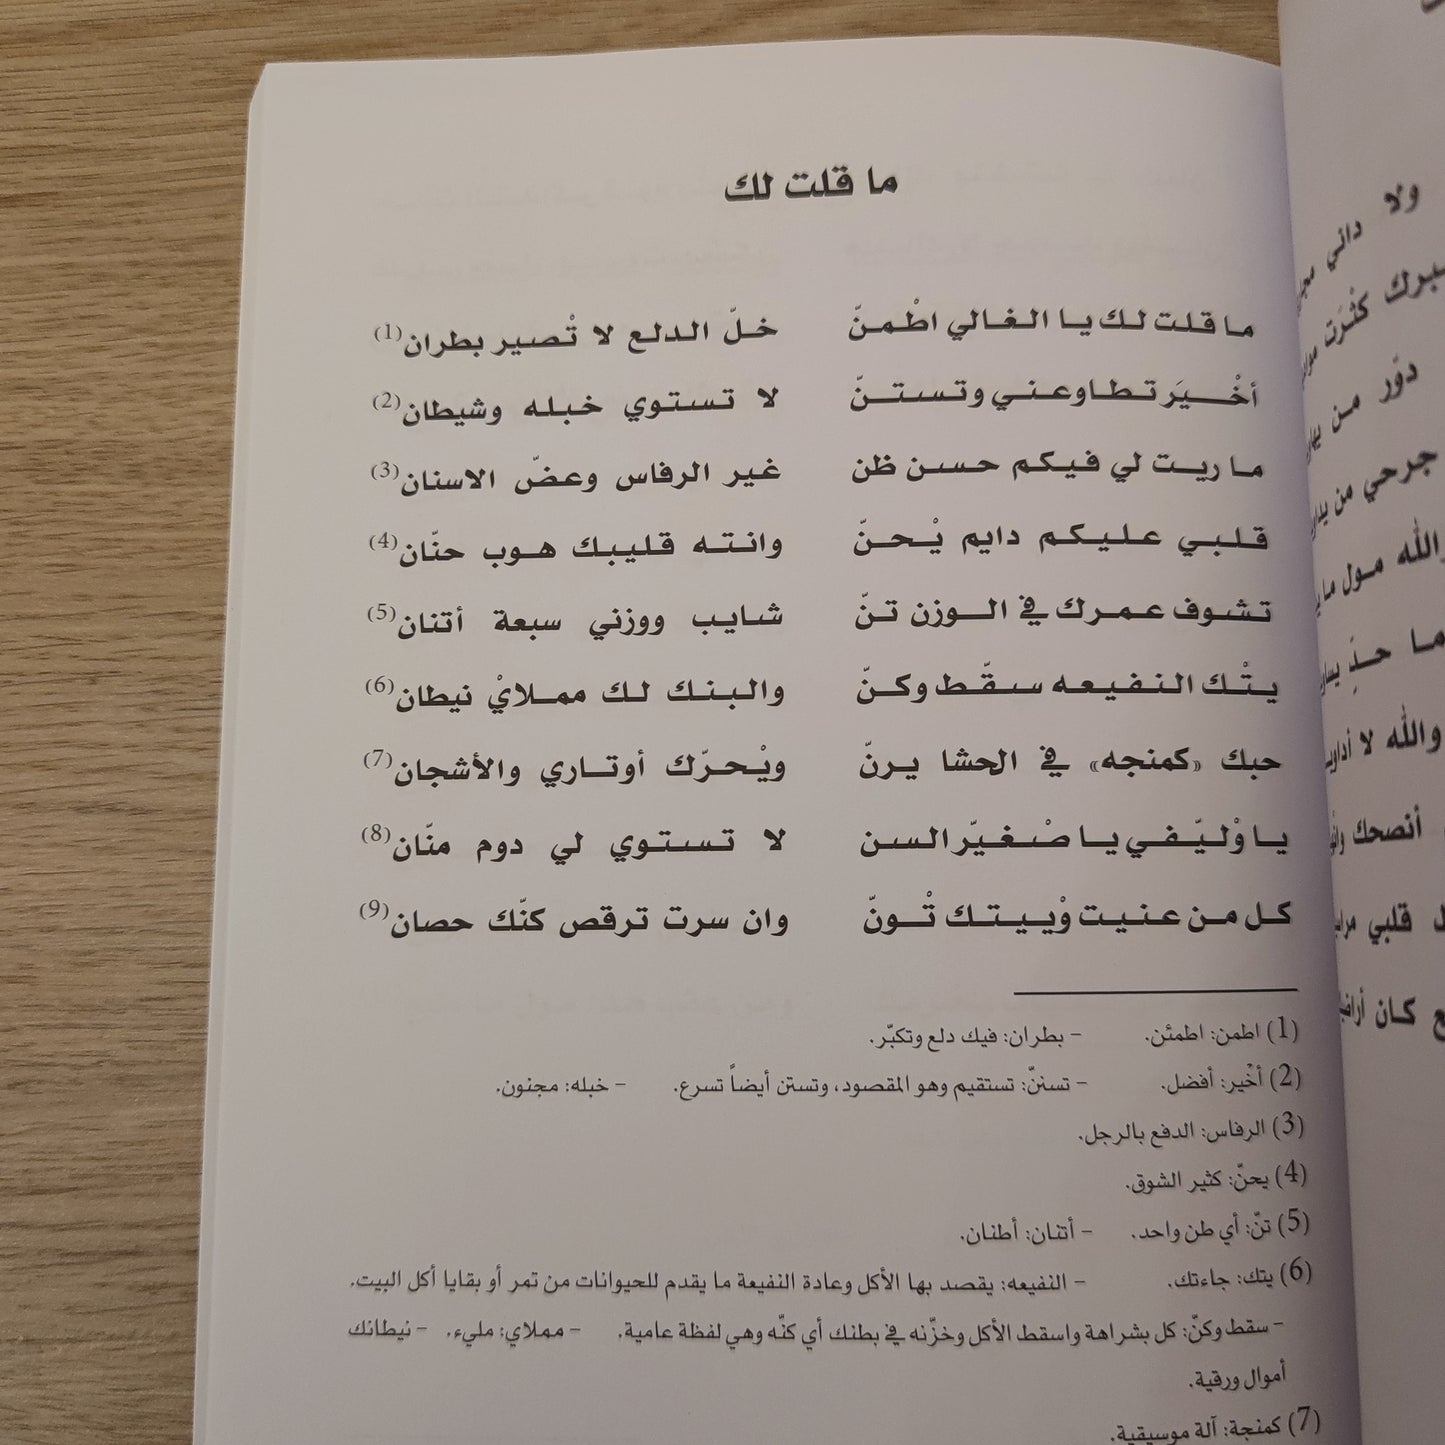 ما قلت لك
ما قلت لك يا الغالي اطْمنّ خلّ الدلع لا تْصير بطران(1)
أخْيَر تطاوعني وتستنّ لا تستوي خبله وشيطان(2)
ما ريت لي فيكم حسن ظن غير الرفاس وعضّ الاسنان(3)
قلبي عليكم دايم يْحنّ وانته قليبك هوب حنّان(4)
تشوف عمرك في الوزن تنّ شايب ووزني سبعة أتنان(5)
يتْك النفيعه سقّط وكنّ والبنك لك مملايْ نيطان(6)
حبك «كمنجه» في الحشا يرنّ ويْحرّك أوتاري والأشجان(7)
يا وْليّفي يا صْغيّر السن لا تستوي لي دوم منّان(8)
كل من عنيت وْييتك تْونّ وان سرت ترقص كنّك حصان(9)
(1) اطمن: اطمئن. - بطران: فيك دلع وتكبّر.
(2) أخْير: أفضل. - تسننّ: تستقيم وهو المقصود، وتستن أيضاً تسرع. - خبله: مجنون.
(3) الرفاس: الدفع بالرجل.
(4) يحنّ: كثير الشوق.
(5) تنّ: أي طن واحد. - أتنان: أطنان.
(6) يتك: جاءتك. - النفيعه: يقصد بها الأكل وعادة النفيعة ما يقدم للحيوانات من تمر أو بقايا أكل البيت.
- سقط وكنّ: كل بشراهة واسقط الأكل وخزّنه في بطنك أي كنّه وهي لفظة عامية. - مملاي: مليء. - نيطانك
أموال ورقية.
(7) كمنجة: آلة موسيقية.
ولا داني
كثْرَت
دوّر من
جرحي من
والله مول ما
ما حدٍ
والله لا
أنصحك
قلبي
كان